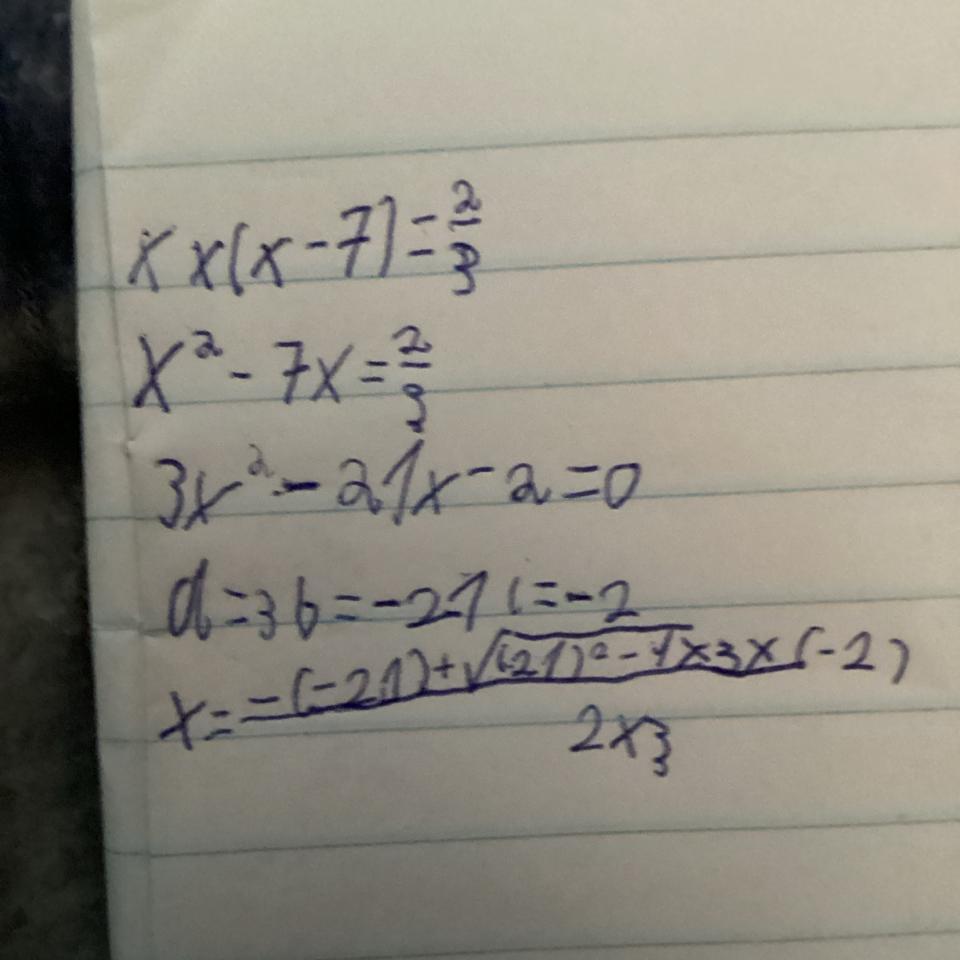 x x(x-7)=2/3
x²-7x=2/3
3x²-21x-2=0
a=3 b=-21 c=-2
x=(-(-21)+√((21)²-4x3x(-2)))/(2x3)